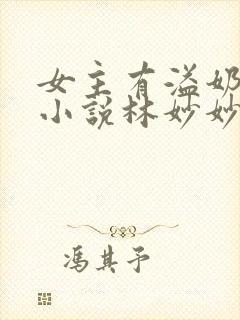 女主有溢奶
小说林妙妙
冯其予